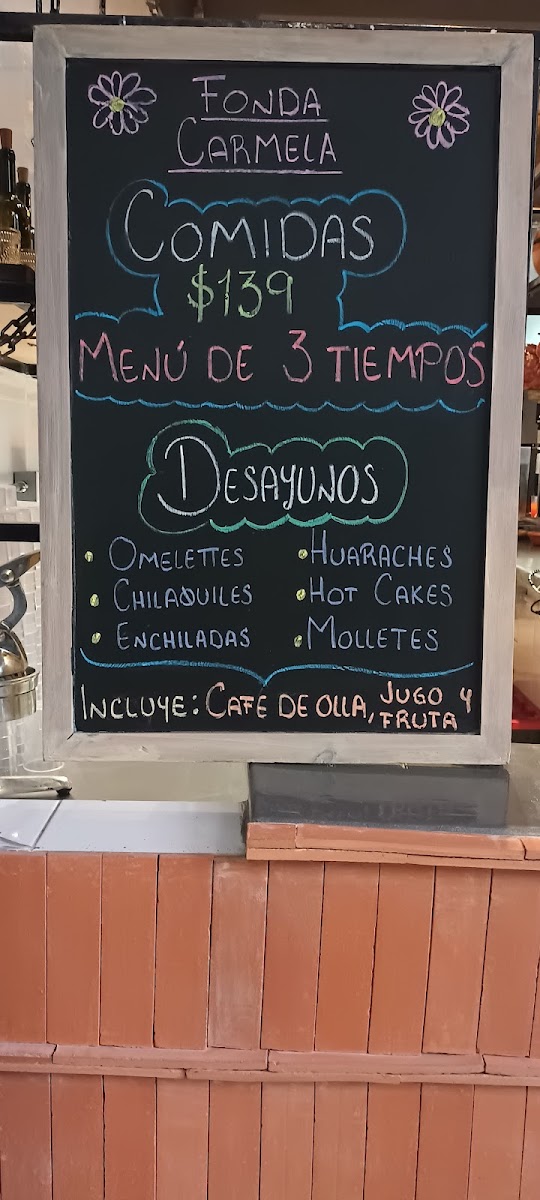 FONDA
CARMELA
COMIDAS
$139
MENÚ DE 3 TIEMPOS
DESAYUNOS
• OMELETTES
• HUARACHES
• CHILAQUILES
• HOT CAKES
• ENCHILADAS
• MOLLETES
INCLUYE: CAFE DE OLLA, JUGO Y
FRUTA